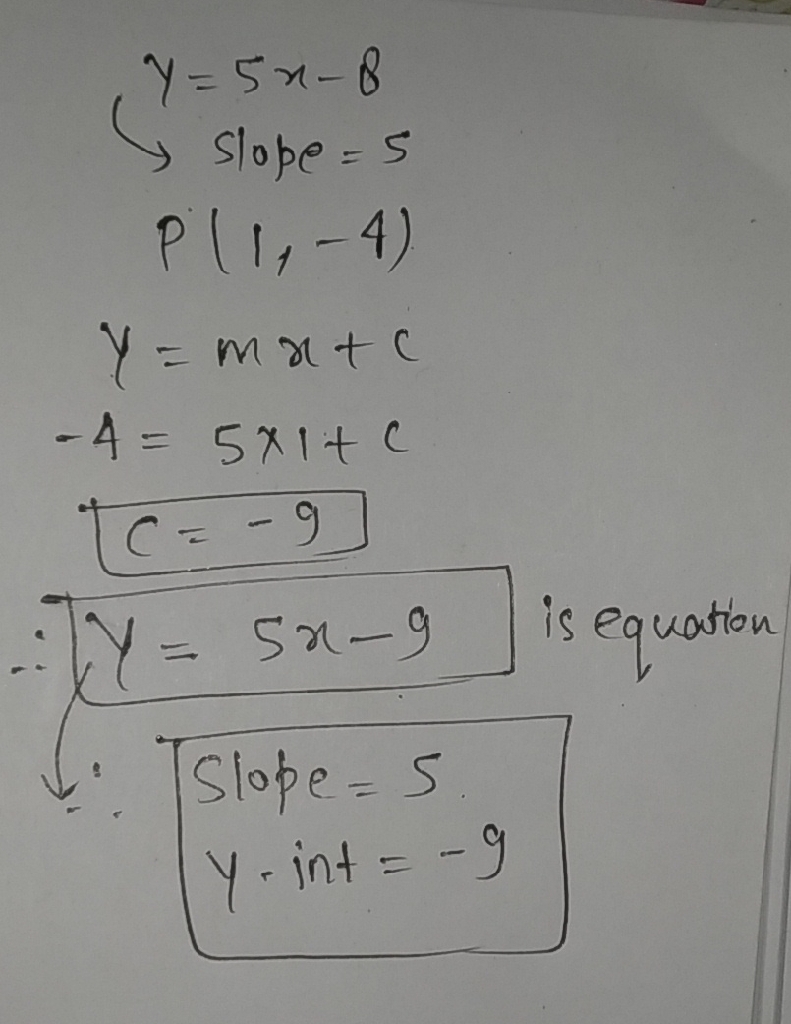 Y = 5x - 8
↳ Slope = 5
P(1, -4)
Y = mx + c
-4 = 5×1 + c
c = -9
∴ Y = 5x - 9 is equation
∴ Slope = 5.
y-int = -9